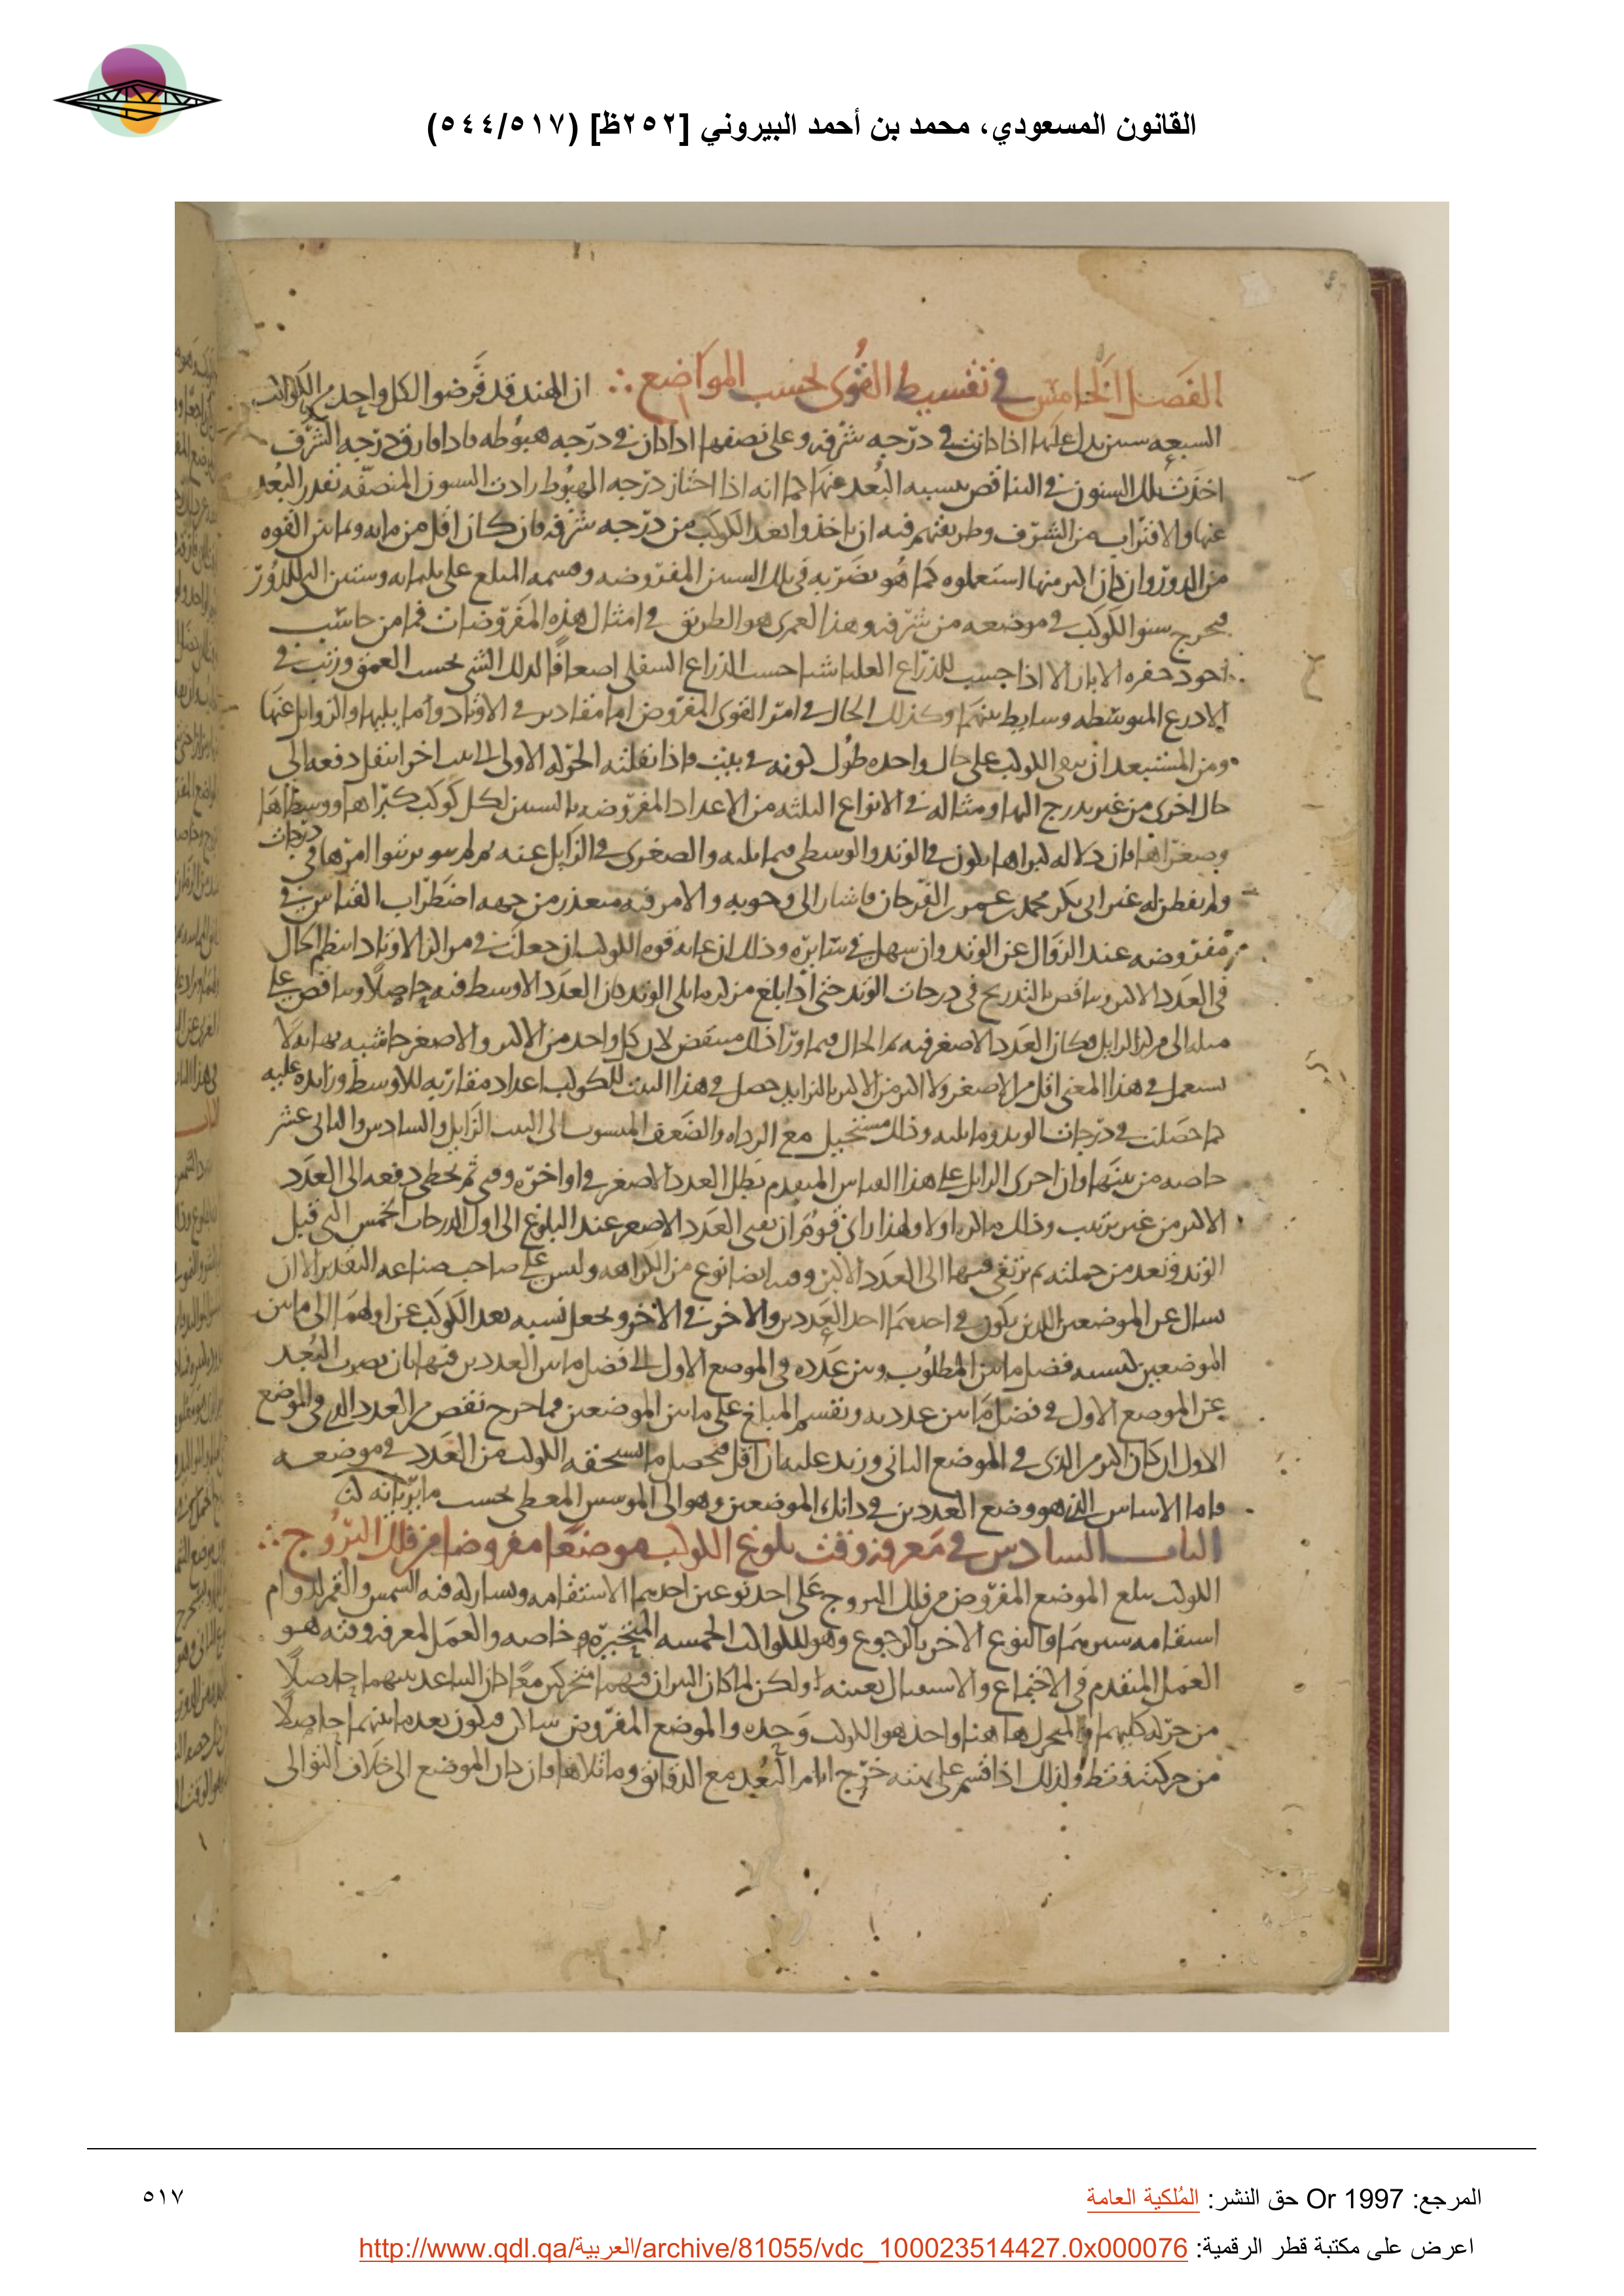 القانون المسعودي، محمد بن أحمد البيروني [٢٥٢ظ] (٥٤٤/٥١٧)
الفصل الخامس في تقسيط القوى بحسب المواضع ان الهند قد فرضوا لكل واحد من الكواكب
السبعه سنين يدل عليها اذا كانت في درجه شرفه وعلى نصفها اذا كان في درجه هبوطه فاذا فارق درجه الشرف
اخذت تلك السنون في التناقص بنسبه البعد عنها كما انه اذا اجتاز درجه الهبوط زادت السنون المنصفه بقدر البعد
عنها والاقتراب من الشرف وطريقتهم فيه ان ياخذوا بعد الكوكب من درجه شرفه فان كان اقل من مايه وثمانين القوه
من الدور وان كان اكثر منها استعملوه كما هو بضربه في تلك السنين المفروضه وقسمه المبلغ على ثلثمايه وستين الدور
فيخرج سنو الكوكب في موضعه من شرفه وهذا لعمرى هو الطريق في امثال هذه المفروضات فما من حاسب
اجود حفره الابار الا اذا حسب للذراع العليا شيا حسب للذراع السفلى اضعافا لذلك الشي بحسب العمق ورتب في
الاذرع المتوسطه وسايط بينهما وكذلك الحال في امر القوى المفروض لها مقادير في الاوتاد وما يليها والزوايل عنها
ومن المستبعد ان يبقى الكوكب على حال واحده طول كونه في بيت فاذا نقلته الحركه الاولى الى بيت اخر انتقل دفعه الى
حال اخرى من غير تدرج اليها ومثاله في الانواع الثلثه من الاعداد المفروضه بالسنين لكل كوكب كبراها ووسطاها
وصغراها فان دلاله كبراها يكون في الوتد والوسطى فيما يليه والصغرى في الزايل عنه ثم لم يرتبوا امرها في درجات
ولم يفطن له غير ابي بكر محمد بن عمر بن الفرخان فاشار الى وجوبه والامر فيه متعذر من جهه اضطراب القياس في
مفروضه عند الزوال عن الوتد وان سهل في سايره وذلك ان غايه قوه الكوكب ان جعلت في مراكز الاوتاد انتظم الحال
في العدد الاكبر وتناقص بالتدريج في درجات الوتد حتى اذا بلغ مركز ما يلي الوتد كان العدد الاوسط فيه حاصلا وتناقص على
مثله الى مركز الزايل فكان العدد الاصغر فيه ثم الحال فيما وراء ذلك منتقض لان كل واحد من الاكبر والاصغر حاشيه نهايه لا
يستعمل في هذا المعنى اقل من الاصغر ولا اكثر من الاكبر بالتزايد حصل في هذا البيت للكوكب اعداد مقاربه للاوسط وزايده عليه
كما حصلت في درجات الوتد وما يليه وذلك مستحيل مع الرداه والضعف المنسوب الى البيت الزايل والسادس والثاني عشر
خاصه من بينها وان اجرى الزايل على هذا القياس المتقدم بطل العدد الاصغر في اواخره وفي ثم تخطى دفعه الى العدد
الاكبر من غير ترتيب وذلك ما انكر اولا ولهذا راى قوم ان يبقى العدد الاصغر عند البلوغ الى اول الدرجات الخمس التي قبل
الوتد وتعد من جملته ثم يرتقى فيها الى العدد الاكبر وفيه ايضا نوع من الكراهه وليس على صاحب صناعه التقدير الا ان
يسال عن الموضعين اللذين يكون في احدهما احد العددين والاخر في الاخر ويجعل نسبه بعد الكوكب عن اولهما الى ما بين
الموضعين كنسبه فضل ما بين المطلوب وبين عدده في الموضع الاول الى فضل ما بين العددين فيهما بان يضرب البعد
عن الموضع الاول في فضل ما بين عدديه ويقسم المبلغ على ما بين الموضعين فما خرج نقص من العدد الذي في الموضع
الاول ان كان اكثر من الذي في الموضع الثاني وزيد عليه ان اقل فيحصل ما يستحقه الكوكب من العدد في موضعه
فاما الاساس الذي هو وضع العددين في ذانك الموضعين فهو الى الموسس المعطي بحسب ما
الباب السادس في معرفه وقت بلوغ الكوكب موضعا مفروضا من فلك البروج
الكوكب يبلغ الموضع المفروض من فلك البروج على احد نوعين احدهما الاستقامه ويساركه فيه الشمس والقمر لدوام
استقامه سيرهما والنوع الاخر بالرجوع وهو للكواكب الخمسه المتحيره خاصه والعمل لمعرفه وقته هو
العمل المتقدم في الاجتماع والاستقبال بعينه ولكن لما كان النيران فيهما متحركين معا كان التباعد بينهما حاصلا
من حركه كليهما والمتحرك ها هنا واحد هو الكوكب وحده والموضع المفروض ساكن فيكون بعد ما بينهما حاصلا
من حركته فقط ولذلك اذا قسم على بهته خرج ايام البعد مع الدقايق وما تلاها فان كان الموضع الى خلاف التوالى
المرجع: Or 1997 حق النشر: المُلكية العامة
٥١٧
اعرض على مكتبة قطر الرقمية: http://www.qdl.qa/العربية/archive/81055/vdc_100023514427.0x000076